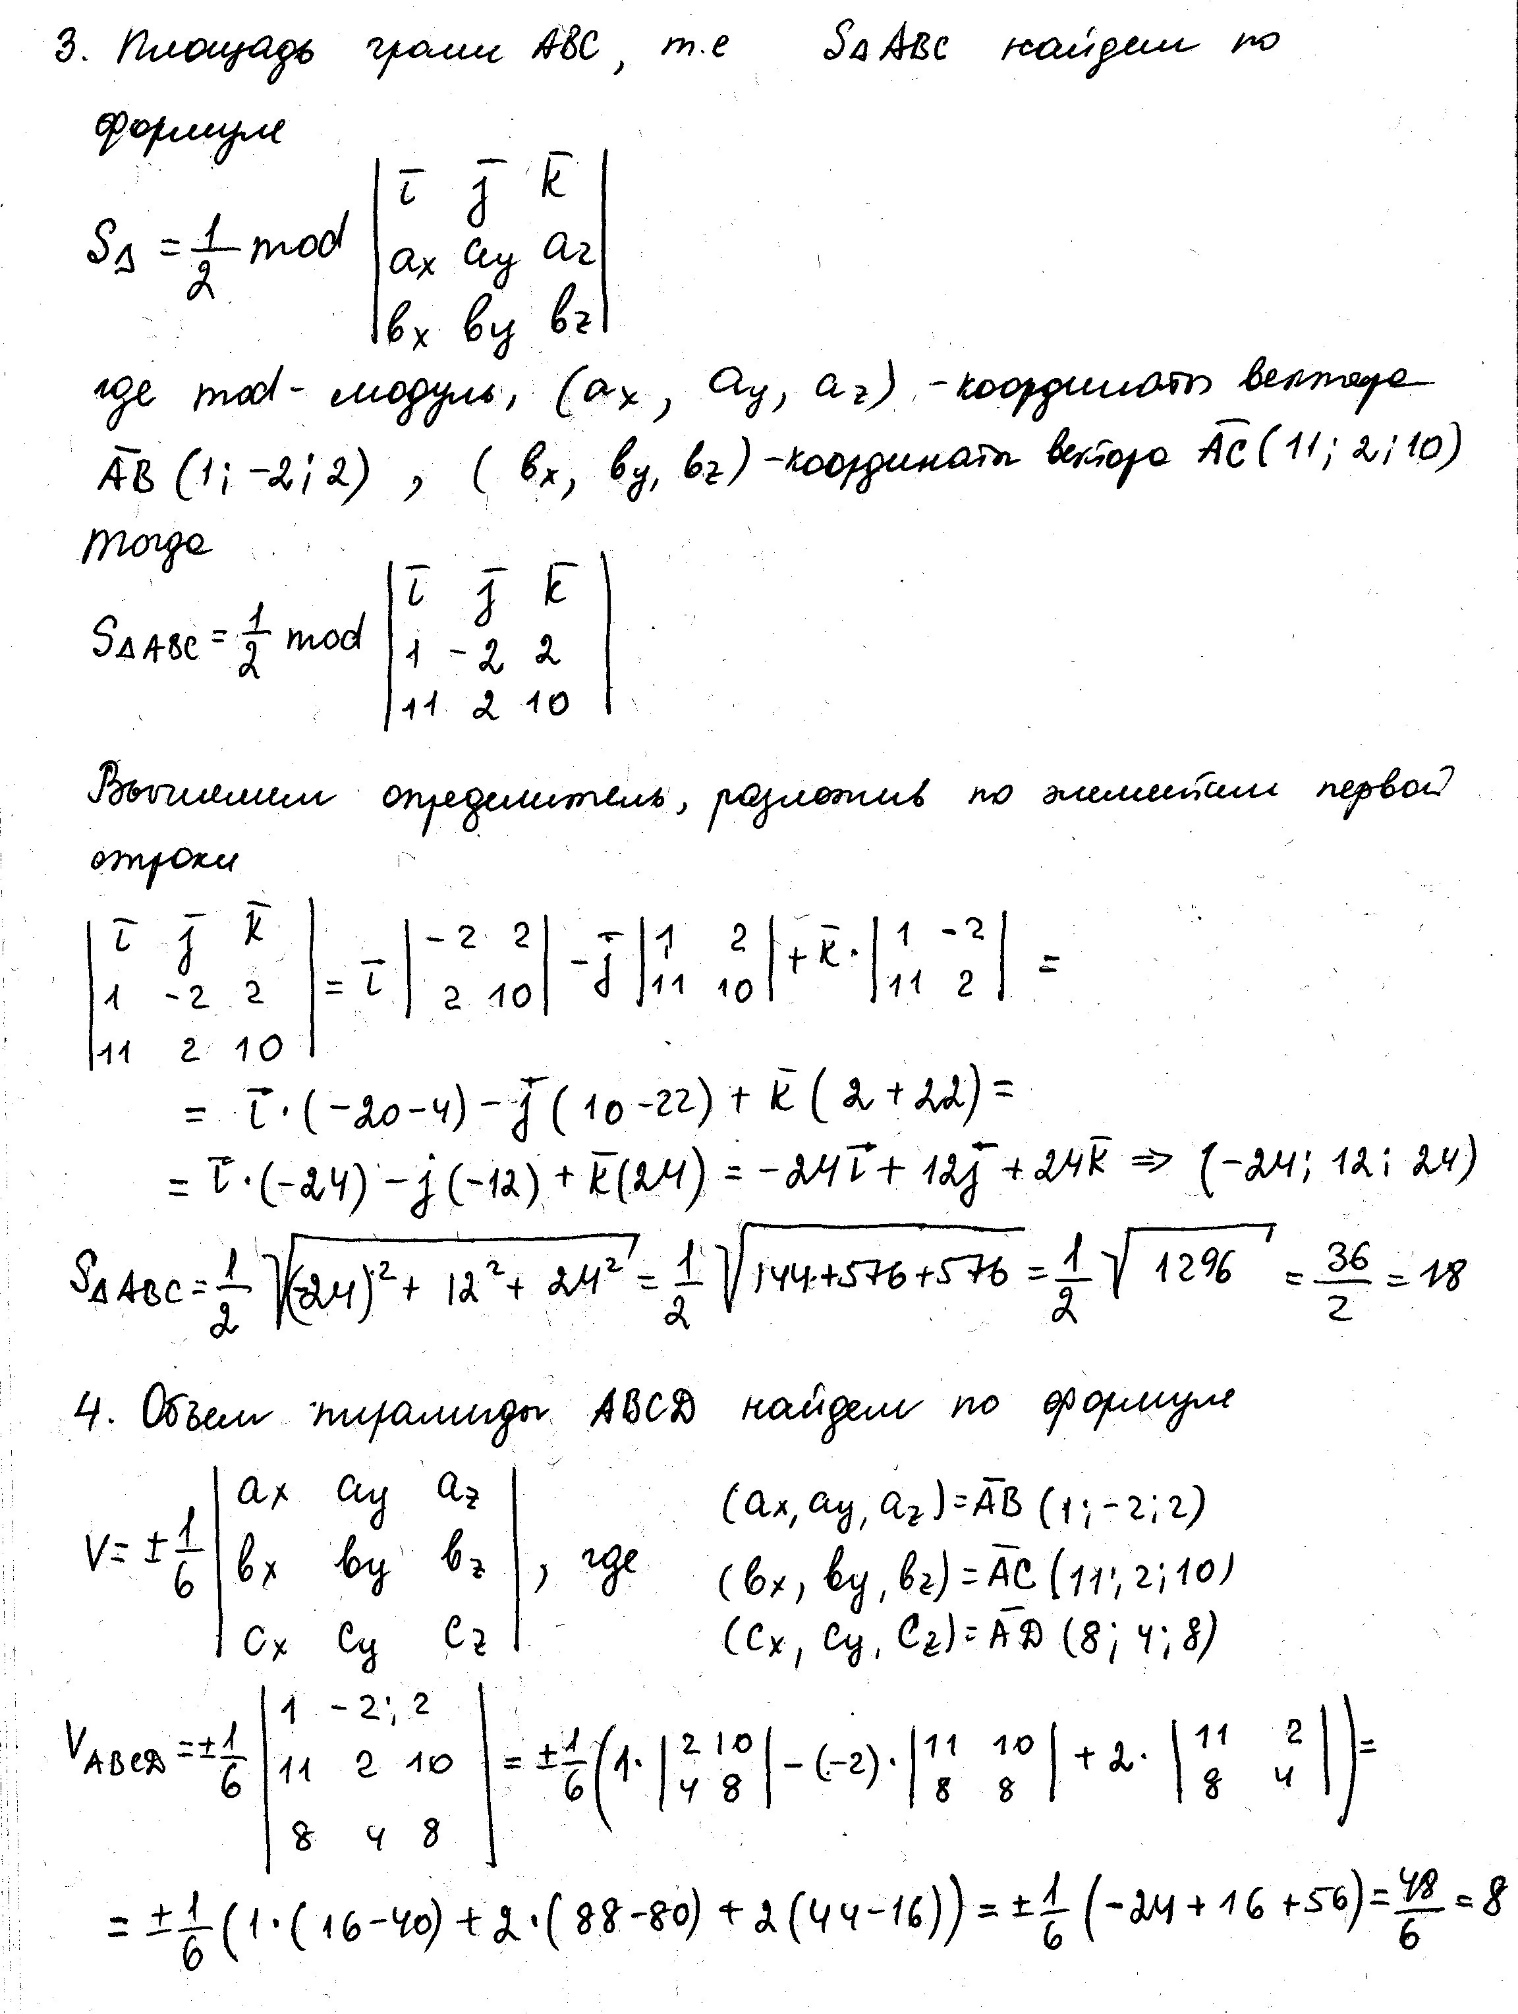 3. Площадь грани ABC, т.е S△ABC найдем по
формуле
S△ = 1/2 mod | i̅ j̅ k̅ |
| ax ay az |
| bx by bz |
где mod - модуль, (ax, ay, az) - координаты вектора
A̅B̅ (1; -2; 2) , ( bx, by, bz) - координаты вектора A̅C̅ (11; 2; 10)
тогда
S△ABC = 1/2 mod | i̅ j̅ k̅ |
| 1 -2 2 |
| 11 2 10 |
Вычислим определитель, разложив по элементам первой
строки
| i̅ j̅ k̅ |
| 1 -2 2 |
| 11 2 10 | = i̅ | -2 2 ; 2 10 | - j̅ | 1 2 ; 11 10 | + k̅ · | 1 -2 ; 11 2 | =
= i̅ · (-20-4) - j̅ (10-22) + k̅ (2+22) =
= i̅ · (-24) - j (-12) + k̅ (24) = -24i̅ + 12j̅ + 24k̅ ⇒ (-24; 12; 24)
S△ABC = 1/2 √((-24)² + 12² + 24²) = 1/2 √(144+576+576) = 1/2 √1296 = 36/2 = 18
4. Объем пирамиды ABCD найдем по формуле
V = ± 1/6 | ax ay az |
| bx by bz |
| cx cy cz | , где
(ax, ay, az) = A̅B̅ (1; -2; 2)
(bx, by, bz) = A̅C̅ (11; 2; 10)
(cx, cy, cz) = A̅D̅ (8; 4; 8)
VABCD = ± 1/6 | 1 -2; 2 |
| 11 2 10 |
| 8 4 8 | = ± 1/6 (1 · | 2 10 ; 4 8 | - (-2) · | 11 10 ; 8 8 | + 2 · | 11 2 ; 8 4 |) =
= ± 1/6 (1 · (16-40) + 2 · (88-80) + 2 (44-16)) = ± 1/6 (-24 + 16 + 56) = 48/6 = 8